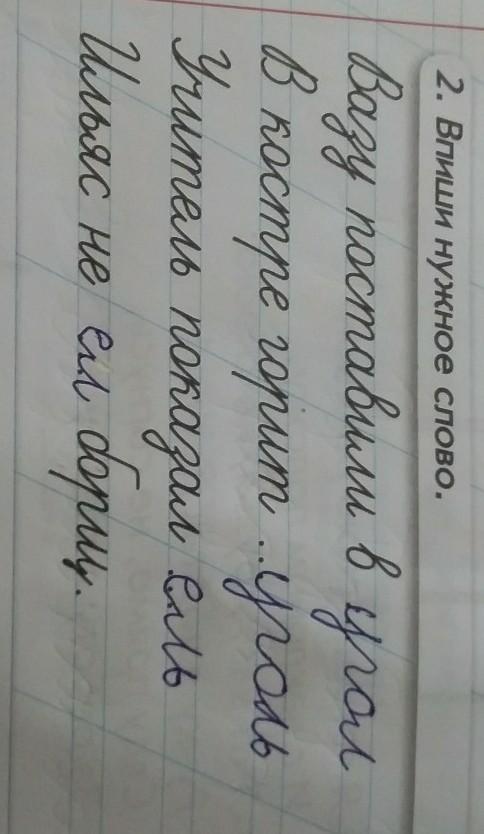 2. Впиши нужное слово.
Вазу поставили в угол
В костре горит ..уголь
Учитель показал ель
Ильяс не ел борщ.